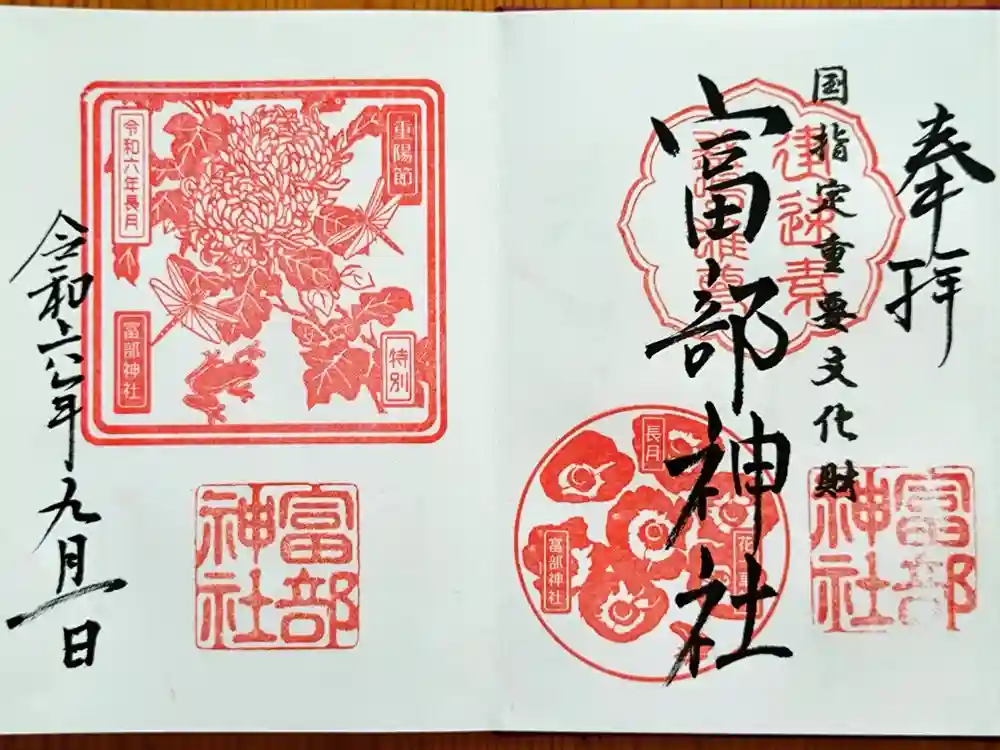 奉拝
国指定重要文化財
富部神社
建速素
長月
富部神社
富部
神社
重陽節
特別
令和六年長月
富部神社
富部
神社
令和六年九月一日